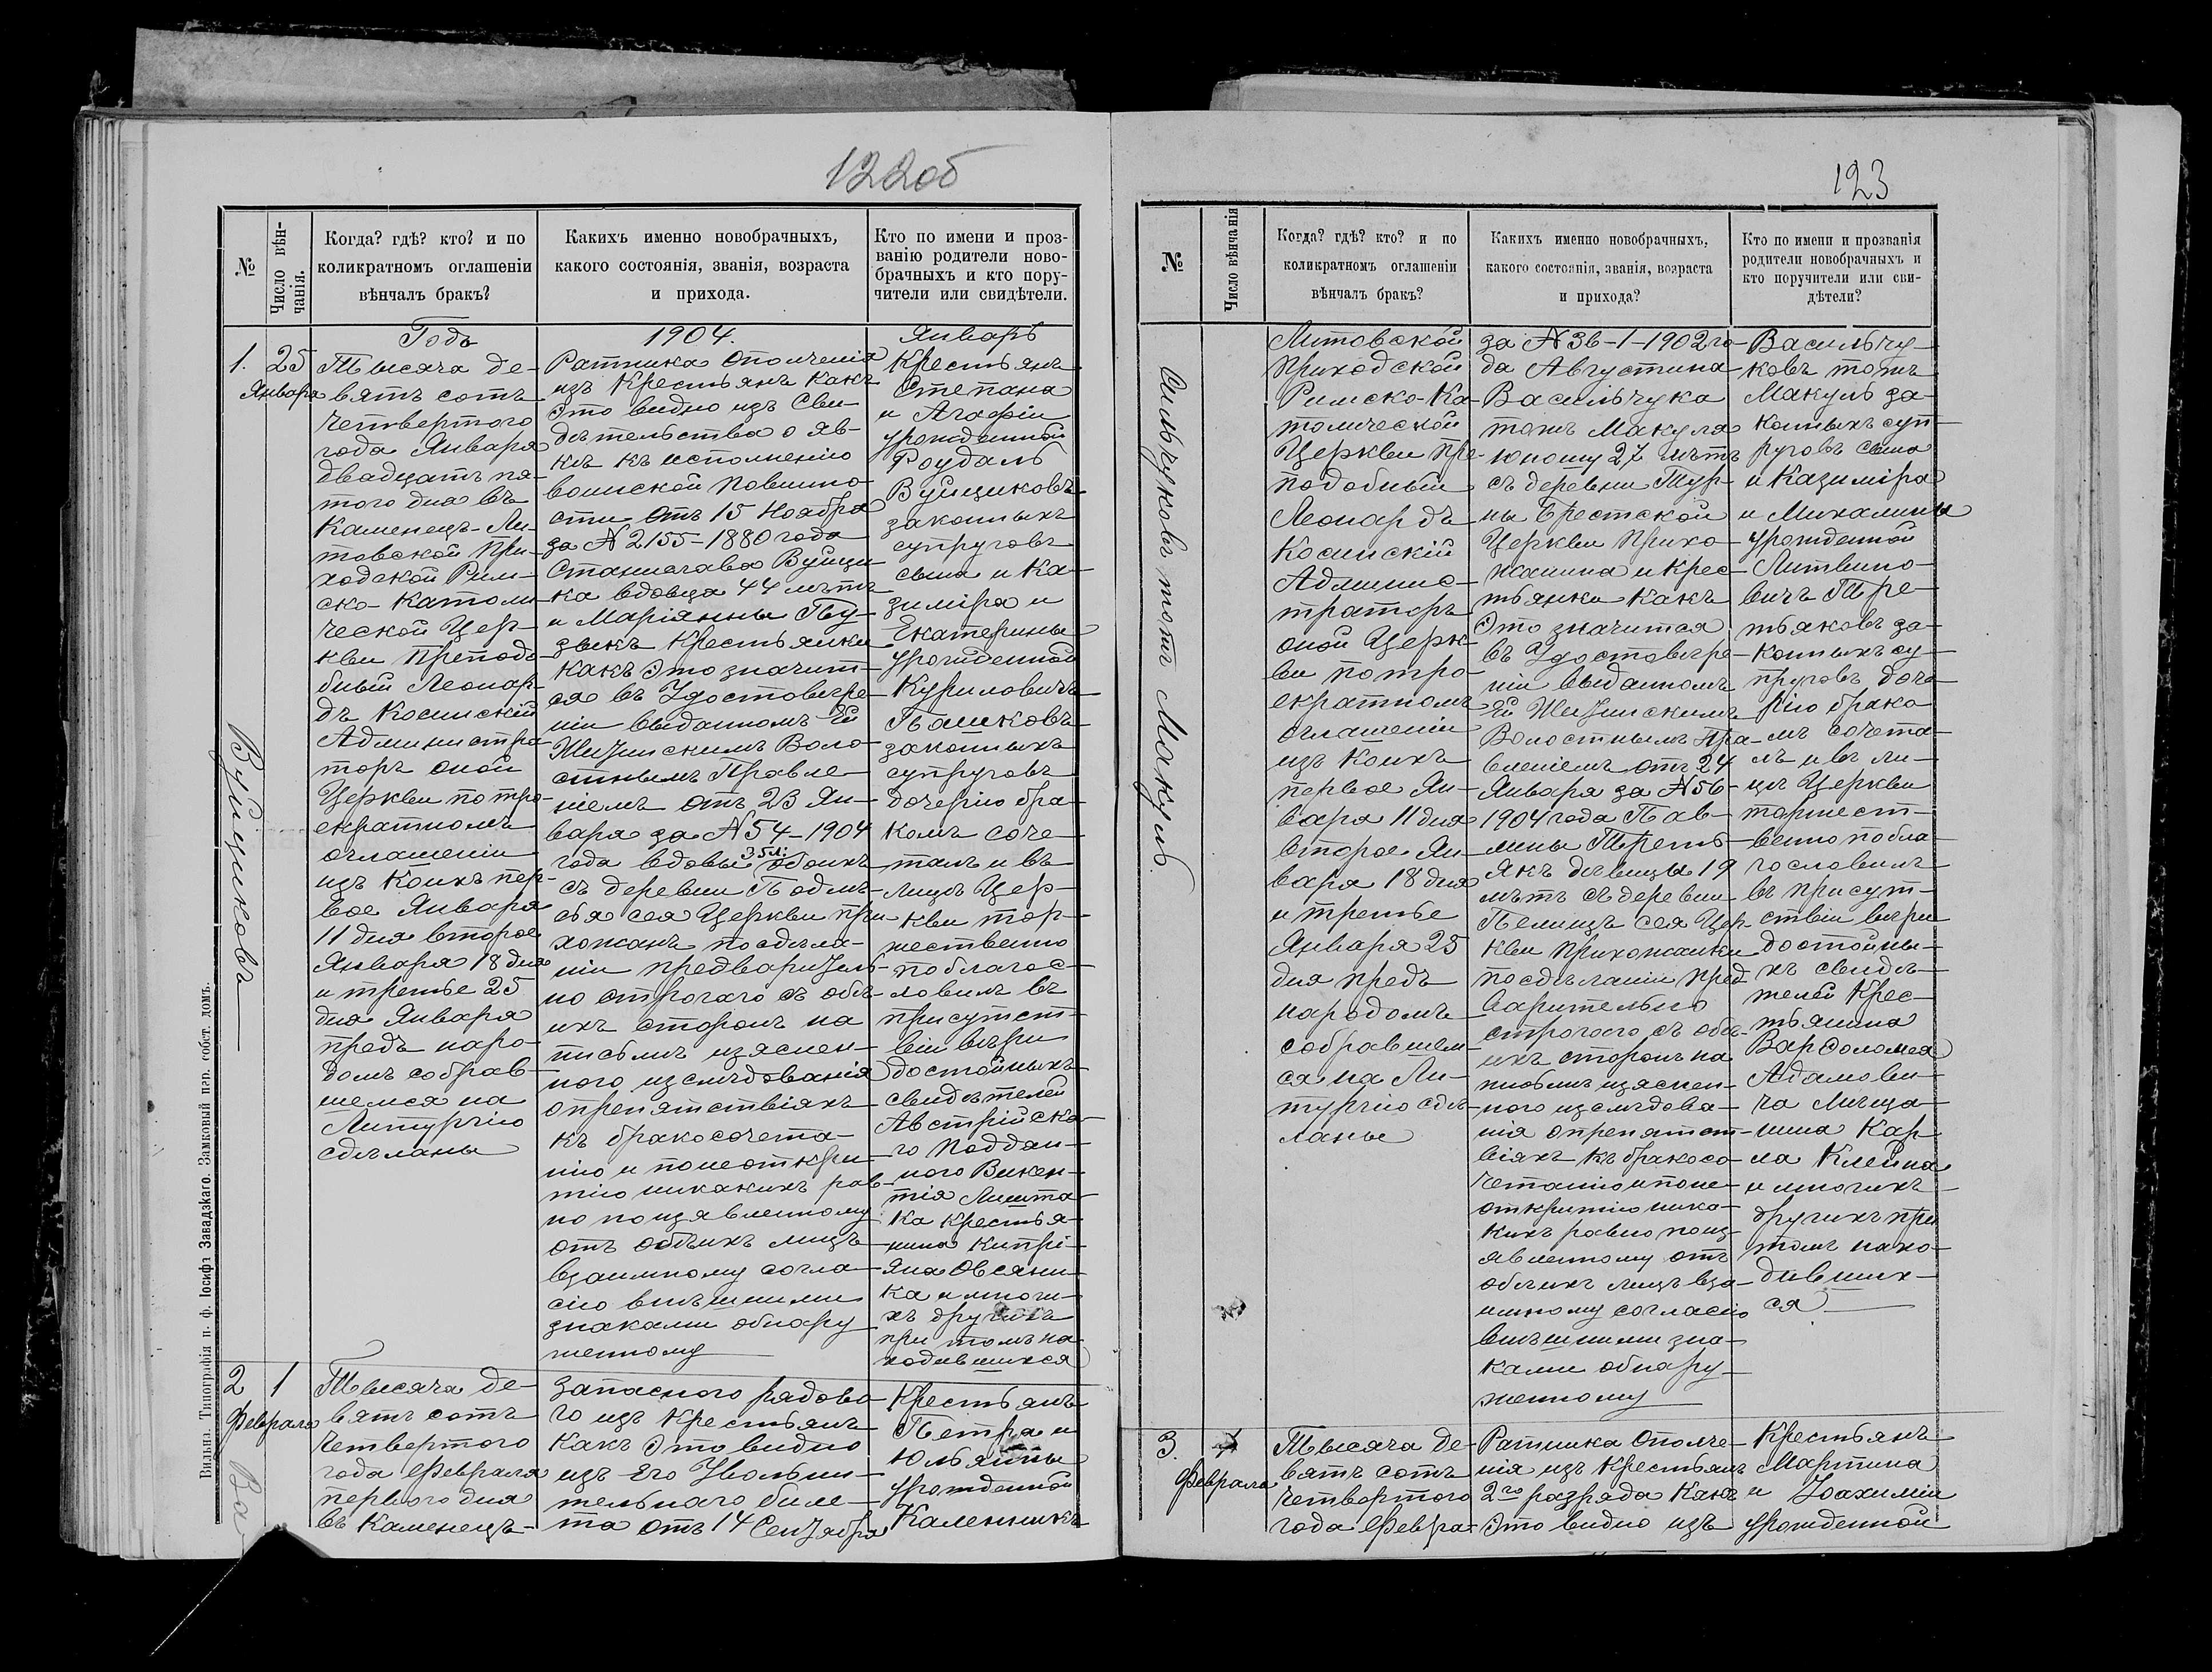 122об
№
Число вѣн-
чанія.
Когда? гдѣ? кто? и по
коликратномъ оглашеніи
вѣнчалъ бракъ?
Какихъ именно новобрачныхъ,
какого состоянія, званія, возраста
и прихода.
Кто по имени и проз-
ванію родители ново-
брачныхъ и кто пору-
чители или свидѣтели.
Годъ
1904.
Январь
1.
25
Января
Вуйциковъ
Тысяча де-
вять сотъ
четвертого
года Января
двадцать пя-
того дня въ
Каменецъ-Ли-
товской При-
ходской Рим-
ско-Католи
ческой Цер-
кви Преподо-
бный Леонар-
дъ Косинскій
Администра
торъ оной
Церкви по тро-
екратномъ
оглашеніи
изъ коихъ пер-
вое Января
11 дня второе
Января 18 дня
и третье 25
дня Января
предъ наро-
домъ собрав-
шемся на
Литургію
сдѣланы
Ратника ополченія
изъ Крестьянъ какъ
Это видно изъ Сви-
дѣтельства о яв-
кѣ къ исполненію
воинской повинно
сти отъ 15 Ноября
за N 2155-1880 года
Станислава Вуйци
ка вдовца 44 лѣтъ
и Маріянны Пу-
зыкъ Крестьянки
какъ это значит-
ся въ Удостовѣре-
ніи выданномъ Ей
Воло-
стнымъ Правле-
ніемъ отъ 23 Ян-
варя за N 54-1904
года вдовы 35 л: обоихъ
съ деревни
сея Церкви при-
хожанъ по сдѣла-
ніи предварит
но строгаго съ обѣ-
ихъ сторонъ на
письмѣ изяснен-
ного изслѣдованія
о препятствіяхъ
къ бракосочета-
нію и по неоткри-
тію никакихъ рав-
но по изявленному
отъ обѣихъ лицъ
взаимному согла-
сію внѣшними
знаками обнару
женному
Крестьянъ
Степана
и Агафіи
урожденной
Роудаль
Вуйциковъ
законныхъ
супруговъ
сына и Ка-
зиміра и
Екатерины
урожденной
Куриловичъ
законныхъ
супруговъ
дочерію бра-
комъ соче-
талъ и въ
лицѣ Цер-
кви тор-
жественно
поблагос-
ловилъ въ
присутст-
віи вѣри
достойныхъ
свидѣтелей
Австрійска-
го Поддан-
ного Викен-
тія
ка Крестья-
нина Кипрі-
яна Овсяни-
ка и многи-
хъ другихъ
при томъ на
ходившихся
2
1
Февраля
Ва
Тысяча де-
вять сотъ
четвертого
года Февраля
первого дня
въ Каменецъ-
Запасного рядово
го изъ Крестьянъ
какъ Это видно
изъ Его Увольни-
тельнаго биле-
та отъ 14 Сентября
Крестьянъ
Петра и
Юльянны
урожденной
Вильна. Типографія п. ф. Іосифъ Завадзкаго. Замковый пер. собст. домъ.
123
№
Число вѣнчанія
Когда? гдѣ? кто? и по
коликратномъ оглашеніи
вѣнчалъ бракъ?
Какихъ именно новобрачныхъ,
какого состоянія, званія, возраста
и прихода?
Кто по имени и прозванія
родители новобрачныхъ и
кто поручители или сви-
дѣтели?
сильчуковъ тожъ Макуль
Литовской
Приходской
Римско-Ка-
толической
Церкви Пре-
подобный
Леонардъ
Косинскій
Админис-
траторъ
оной Церк-
ви по тро-
екратномъ
оглашеніи
изъ коихъ
первое Ян-
варя 11 дня
второе Ян-
варя 18 дня
и третье
Января 25
дня предъ
народомъ
собравшем-
ся на Ли-
тургію сдѣ-
ланы
за N 36-1-1902 го-
да Августина
Васильчука
тожъ Макуля
юношу 27 лѣтъ
съ деревни Тур-
ны Брестской
Церкви прихо-
жанина и Крес-
тьянки какъ
Это значится
въ Удостовѣре-
ніи выданномъ
Ей
Волостнымъ Пра-
вленіемъ отъ 24
Января за N 56-
1904 года Пав-
лины Треть-
якъ дѣвицы 19
лѣтъ съ деревни
Пелищъ сея Цер-
кви Прихожанки
по сдѣланіи пред
варительно
строгого съ обѣ-
ихъ сторонъ на
письмѣ изяснен-
ного изслѣдова-
нія о препятст-
віяхъ къ бракосо-
четанію и по не-
открытію ника-
кихъ равно по из-
явленному отъ
обѣихъ лицъ вза-
имному согласію
внѣшними зна-
ками обнару-
женному
Васильчу-
ковъ тожъ
Макуль за-
конныхъ суп-
руговъ сына
и Казиміра
и Михалины
урожденной
Литвино-
вичъ Тре-
тьяковъ за-
конныхъ су-
пруговъ доче-
рію брако
мъ сочета-
лъ и въ ли-
цѣ Церкви
торжест-
венно побла-
гословилъ
въ присут-
ствіи вѣри
достойны-
хъ свидѣ-
телей Крес-
тьянина
Варфоломея
Адамови-
ча Мѣща-
нина Кар
ла Клейна
и многихъ
другихъ при
томъ нахо-
дивших-
ся
3.
Февраля
Тысяча де-
вять сотъ
четвертого
года Февра-
Ратника Ополче-
нія изъ Крестьянъ
2го разряда какъ
Это видно изъ
Крестьянъ
Мартина
и Іоахиміи
урожденной